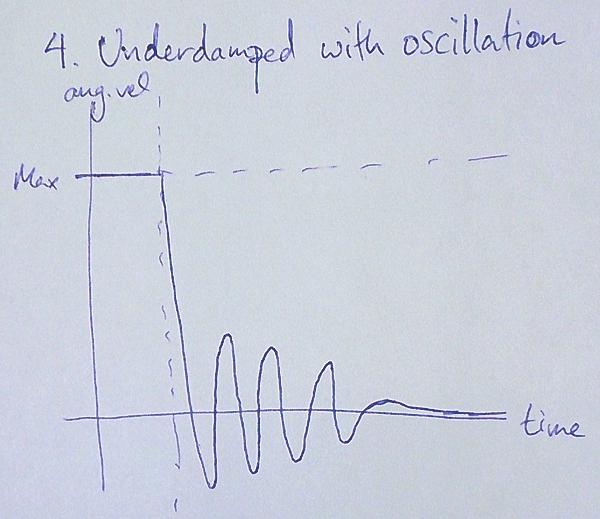 4. Underdamped with oscillation
ang.vel
Max
time